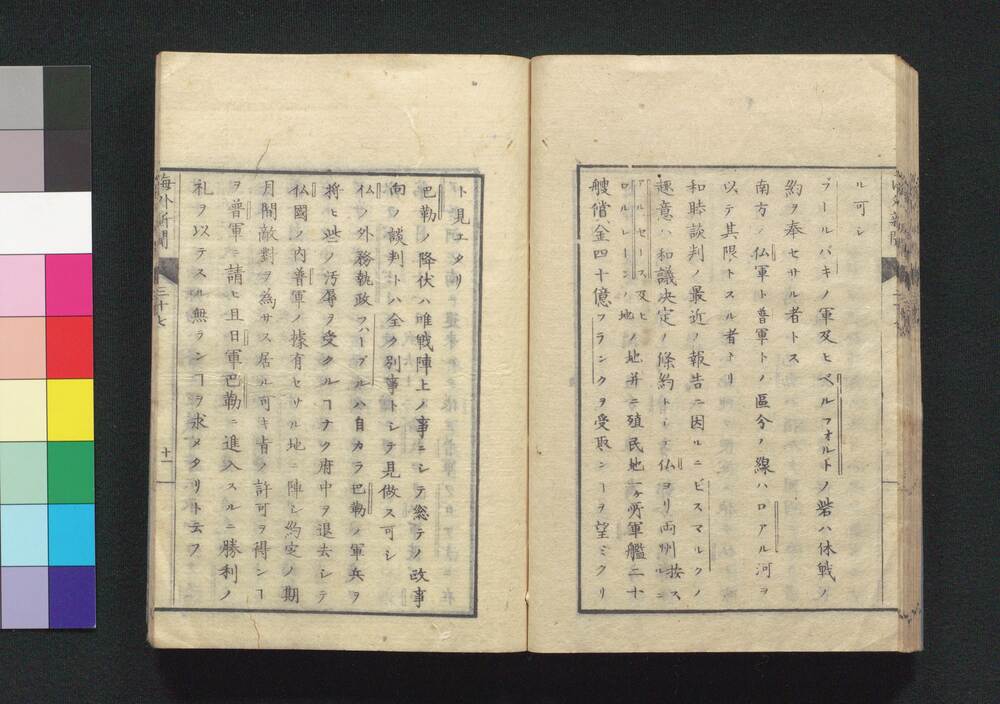 ル可シ
ブールバキノ軍及ヒベルフォルトノ砦ハ休戦ノ
約ヲ奉セサル者トス
南方ノ仏軍ト普軍トノ區分ノ線ハロアル河ヲ
以テ其限トスル者ナリ
和睦談判ノ最近ノ報告ニ因ルニビスマルクノ
趣意ハ和議决定ノ條約トシテ仏ヨリ両州 按スルニ
アルセース及ヒ
ロルレーンノ地 ノ地并ニ殖民地一ヶ所軍艦二十
艘償金四十億フランクヲ受取ンヿヲ望ミタリ
ト見エタリ
巴勒ノ降伏ハ唯戦陣上ノ事ニシテ総テノ政事
向ノ談判トハ全ク別事トシテ見做ス可シ
仏ノ外務執政フハーブルハ自カラ巴勒ノ軍兵ヲ
将ヒ些ノ汚辱ヲ受クルヿナク府中ヲ退去シテ
仏國ノ内普軍ノ據有セサル地ニ陣シ約定ノ期
月間敵對ヲ為サス居ル可キ旨ノ許可ヲ得ンヿ
ヲ普軍ニ請ヒ且日軍巴勒ニ進入スルニ勝利ノ
礼ヲ以テスル無ランヿヲ求メタリト云フ
海外新聞
三十七
十一